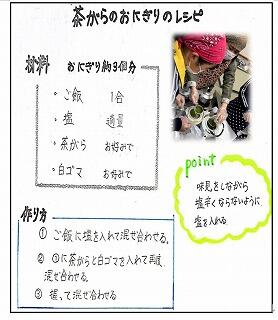 茶がらのおにぎりのレシピ
材料 おにぎり約3個分
・ご飯 1合
・塩 適量
・茶がら お好みで
・白ゴマ お好みで
point
味見をしながら
塩辛くならないように
塩を入れる
作り方
① ご飯に塩を入れて混ぜ合わせる。
② ①に茶がらと白ゴマを入れて再度、
混ぜ合わせる。
③ 握って混ぜ合わせる